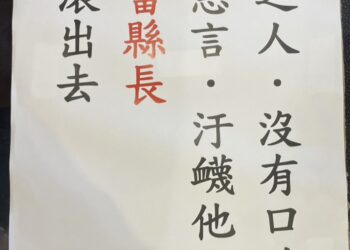 之人・沒有口
言・汙衊他
縣長
滾出去